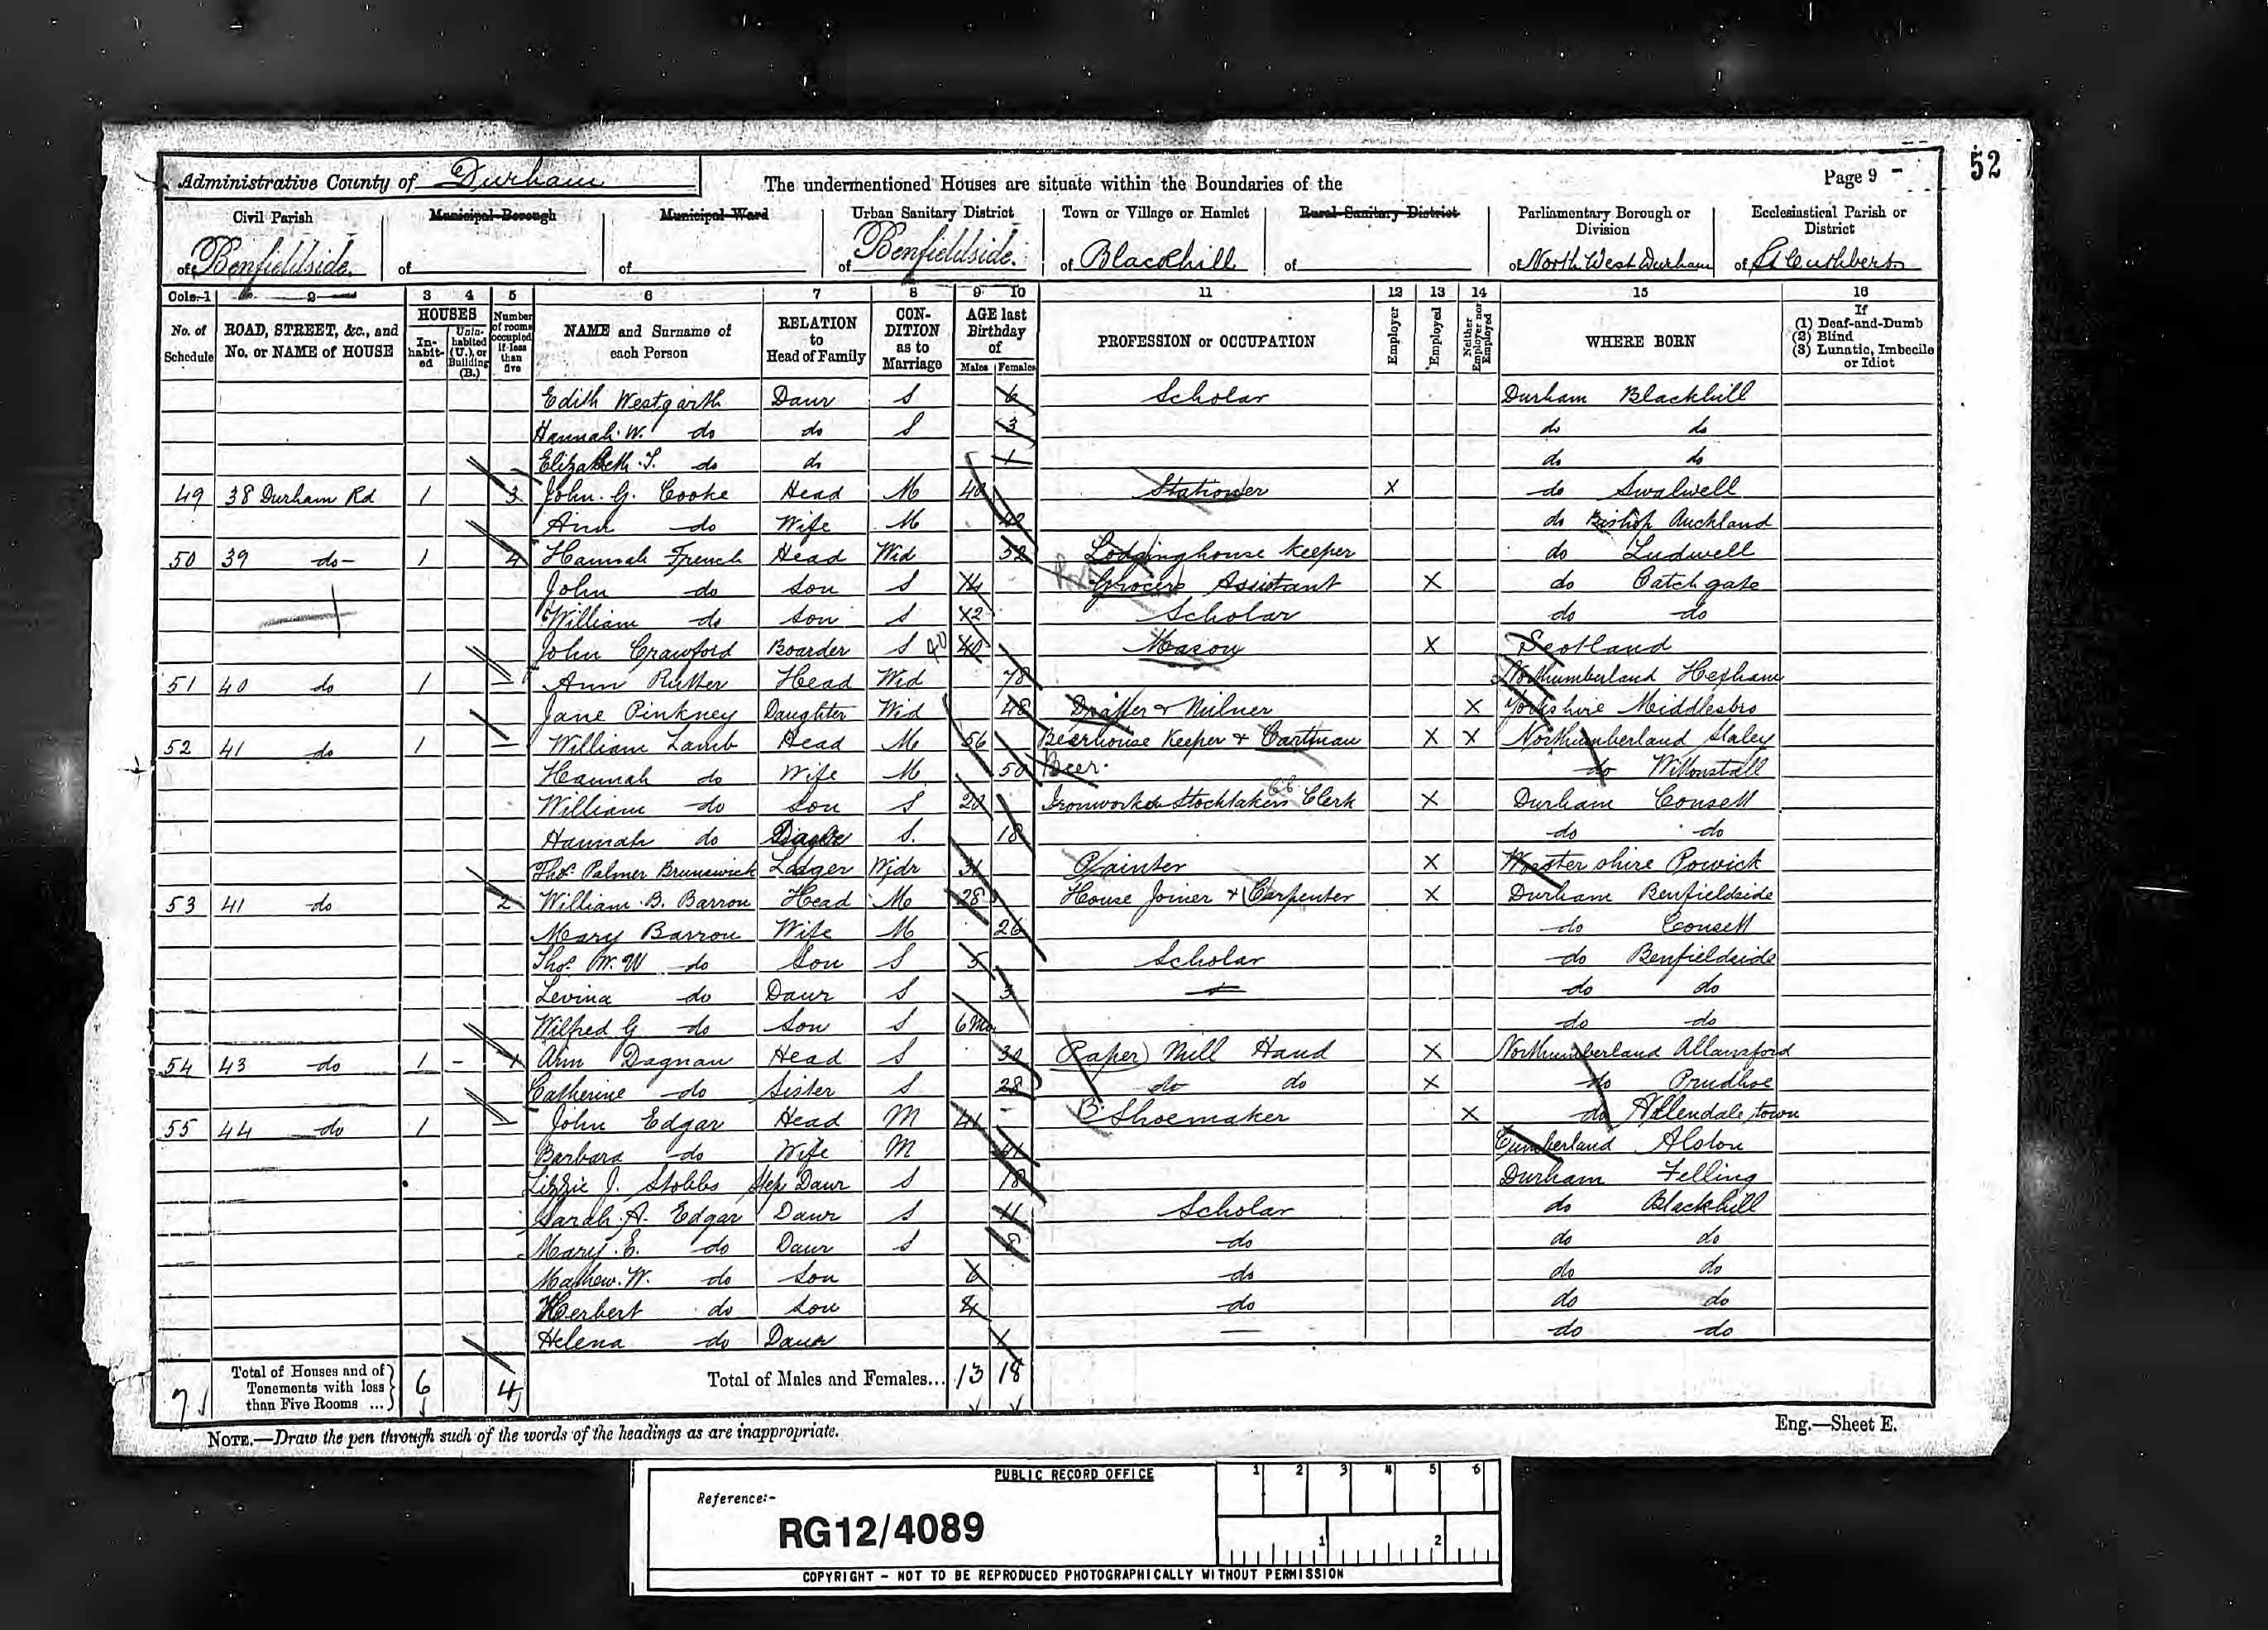 52
Administrative County of Durham The undermentioned Houses are situate within the Boundaries of the Page 9
Civil Parish Municipal Borough Municipal Ward Urban Sanitary District Town or Village or Hamlet Rural Sanitary District Parliamentary Borough or Division Ecclesiastical Parish or District
of Benfieldside of of of Benfieldside. of Blackhill of of North West Durham of St Cuthberts
Cols. 1 2 3 4 5 6 7 8 9 10 11 12 13 14 15 16
No. of Schedule ROAD, STREET, &c., and No. or NAME of HOUSE HOUSES Inhabited Uninhabited (U.), or Building (B.) Number of rooms occupied if less than five NAME and Surname of each Person RELATION to Head of Family CONDITION as to Marriage AGE last Birthday of Males Females PROFESSION or OCCUPATION Employer Employed Neither Employer nor Employed WHERE BORN If (1) Deaf-and-Dumb (2) Blind (3) Lunatic, Imbecile or Idiot
Edith Westgarth Daur S 6 Scholar Durham Blackhill
Hannah W. do do S 3 do do
Elizabeth S. do do 1 do do
49 38 Durham Rd 1 3 John G. Cooke Head M 40 Stationer X do Swalwell
Ann do Wife M do Bishop Auckland
50 39 do 1 4 Hannah French Head Wid 52 Lodginghouse Keeper do Ludwell
John do Son S 14 Grocers Assistant X do Catchgate
William do Son S 12 Scholar do do
John Crawford Boarder S 40 40 Mason X Scotland
51 40 do 1 – Ann Rutter Head Wid 78 Northumberland Hexham
Jane Pinkney Daughter Wid 48 Draper & Milner X Yorkshire Middlesbro
52 41 do 1 – William Lamb Head M 56 Beerhouse Keeper & Cartman X X Northumberland Slaley
Hannah do Wife M 50 Beer. do
William do Son S 20 Ironworks Stocktakers Clerk X Durham Consett
Hannah do S. 18 do do
Thos. Palmer Brunswick Lodger Widr 31 Painter X Worstershire Powick
53 41 do 2 William B. Barron Head M 28 House Joiner & Carpenter X Durham Benfieldside
Mary Barron Wife M 26 do Consett
Thos. W. W do Son S 5 Scholar do Benfieldside
Levina do Daur S 3 do do
Wilfred G do Son S 6 Mo do do
54 43 do 1 - 1 Ann Dagnan Head S 30 (Paper) Mill Hand X Northumberland Allansford
Catherine do Sister S 28 do do X do Prudhoe
55 44 do 1 – John Edgar Head M 41 B. Shoemaker X do Allendale town
Barbara do Wife M 41 Cumberland Alston
Lizzie J. Stobbs Step Daur S 18 Durham Felling
Sarah A. Edgar Daur S 11 Scholar do Blackhill
Mary E. do Daur S 8 do do do
Mathew. W. do Son 6 do do do
Herbert do Son 4 do do do
Helena do Daur — do do
Total of Houses and of Tenements with less than Five Rooms ... 6 4 Total of Males and Females... 13 18
NOTE.—Draw the pen through such of the words of the headings as are inappropriate.
Eng.—Sheet E.
PUBLIC RECORD OFFICE
1 2 3 4 5 6
Reference:-
RG12/4089
1 2
COPYRIGHT - NOT TO BE REPRODUCED PHOTOGRAPHICALLY WITHOUT PERMISSION